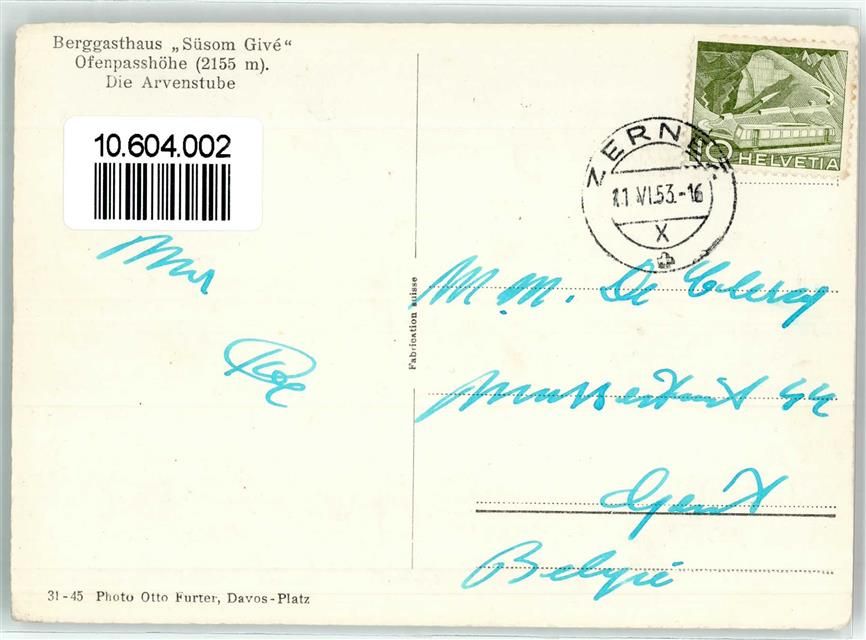 Berggasthaus „Süsom Givé“
Ofenpasshöhe (2155 m).
Die Arvenstube
10.604.002
10 HELVETIA
ZERNEZ
11.VI.53.-16
X
Fabrication suisse
M. M. De Clercq
44
Gent
België
31-45 Photo Otto Furter, Davos-Platz